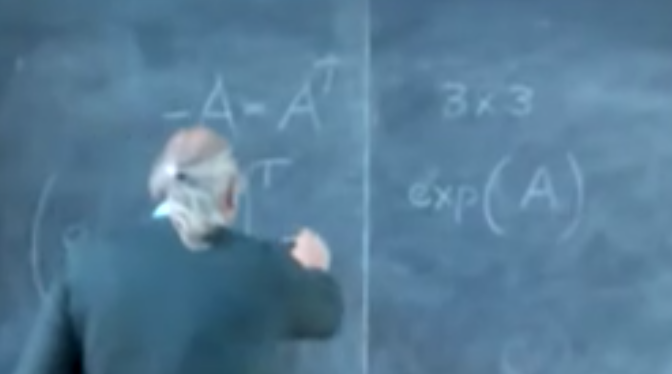 -A = A^T
( )^T
3 x 3
exp(A)